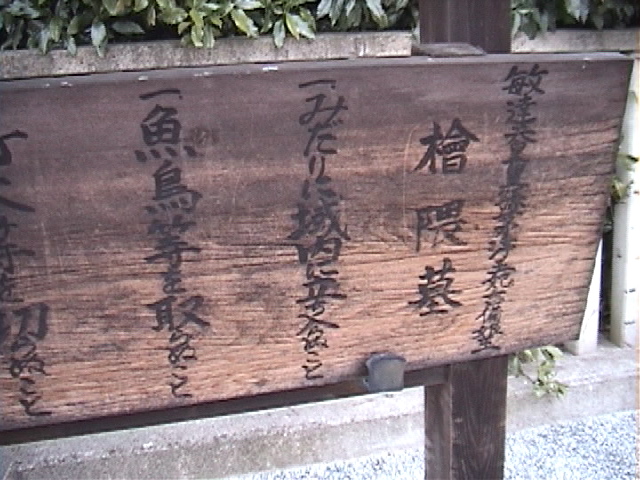 敏達天皇皇孫
檜隈墓
一みだりに域内に立入らぬこと
一魚鳥等を取らぬこと
竹木等を切らぬこと